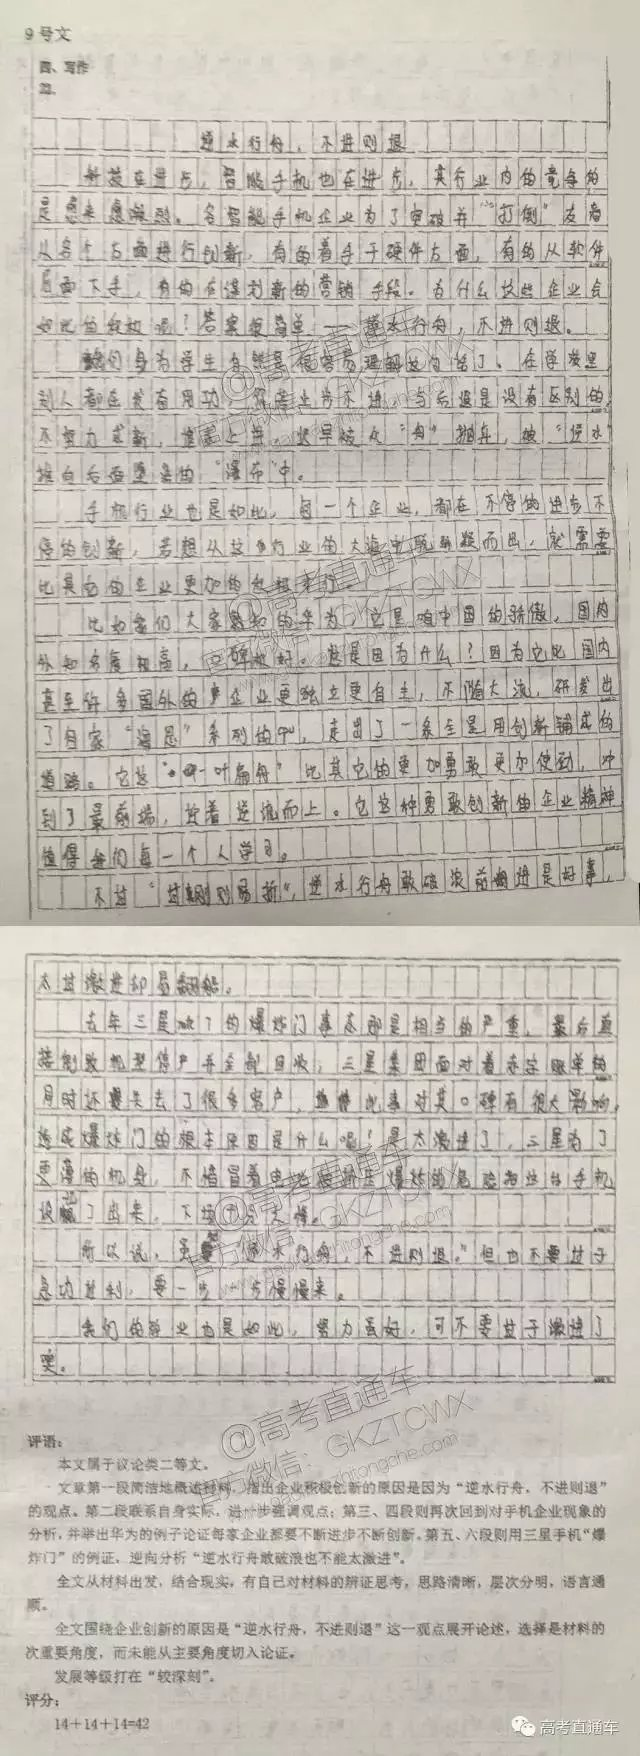 9号文
四、写作
逆水行舟，不进则退
科技在进步，智能手机也在进步，其行业内的竞争的
是愈来愈激烈。各智能手机企业为了突破并“打倒”友商
从各个方面进行创新，有的着手于硬件方面，有的从软件
方面下手，有的在谋划新的营销手段。为什么这些企业会
如此的积极呢？答案很简单——逆水行舟，不进则退。
我们身为学生自然是很容易理解这句话了。在学校里
别人都在发奋用功，你若止步不进，与后退是没有区别的，
不努力求新，
推向后面
的“瀑布”中。
手机行业也是如此，每一个企业，都在不停的进步不
停的创新，若想从这个行业的大海中脱颖而出，就需要
比其它的企业更加的
比如我们大家熟知的华为，它是咱中国的骄傲，国内
外知名度极高，口碑极好。这是因为什么？因为它比国内
甚至许多国外的企业更独立更自主，不随大流，研发出
了自家“海思”系列的 走出了一条全是用创新铺成的
道路。它这“一叶扁舟”比其它的更加勇敢更加使劲，冲
到了最前端，按着逆流而上。它这种勇敢创新的企业精神
值得我们每一个人学习。
不过“过刚则易折”，逆水行舟敢破浪前进是好事，
太过激进却易翻船。
去年三星 的爆炸门事态那是相当的严重，最后直
接倒致机型停产并全部回收，三星集团面对着赤字账单的
同时还要失去了很多客户， 此事对其口碑有很大影响。
造成爆炸门的根本原因是什么呢？是太激进了，三星为了
更薄的机身，不惜冒着电池 爆炸的危险把这台手机
设 了出来，下场
所以说，虽 “逆水行舟，不进则退。”但也不要过于
急功近利，要一步一步慢慢来。
我们的学业也是如此，努力虽好，可不要过于激进了
噢。
评语：
本文属于议论类二等文。
文章第一段简洁地概述材料，指出企业积极创新的原因是因为“逆水行舟，不进则退”
的观点。第二段联系自身实际，进一步强调观点；第三、四段则再次回到对手机企业现象的
分析，并举出华为的例子论证每家企业都要不断进步不断创新。第五、六段则用三星手机“爆
炸门”的例证，逆向分析“逆水行舟敢破浪也不能太激进”。
全文从材料出发，结合现实，有自己对材料的辨证思考，思路清晰，层次分明，语言通
顺。
全文围绕企业创新的原因是“逆水行舟，不进则退”这一观点展开论述，选择是材料的
次重要角度，而未能从主要角度切入论证。
发展等级打在“较深刻”。
评分：
14+14+14=42
@高考直通车
官方微信：GKZTCWX
@高考直通车
官方微信：GKZTCWX
@高考直通车
官方微信：GKZTCWX
高考直通车